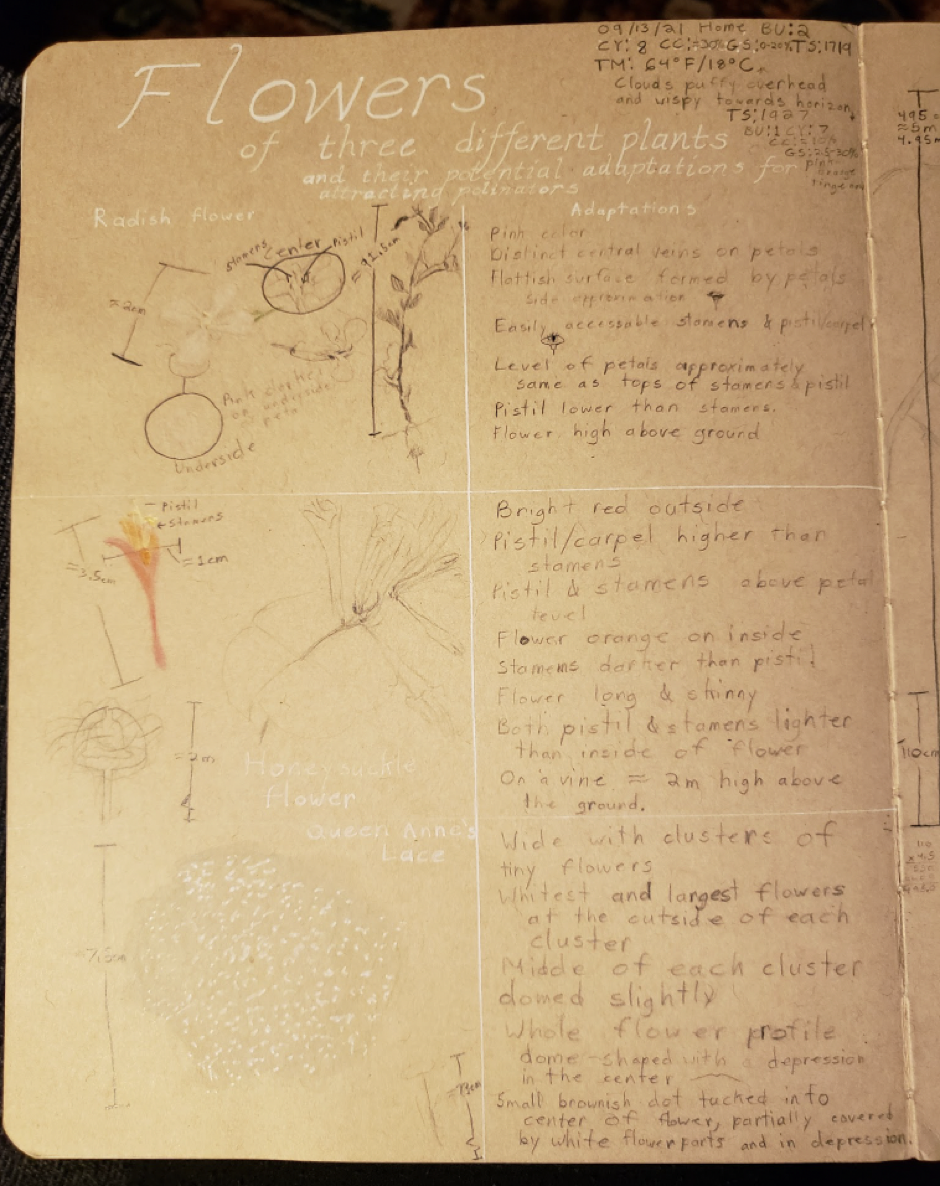 09/13/21 Home BU:2
CY: 8 CC:≈30% GS:0-20% TS:1719
TM: 64°F/18°C.
Clouds puffy overhead
and wispy towards horizon
TS:1927
BU:1 CY:7
CC:≈10%
GS:25-30%
pink-
orange
tinge on
Flowers
of three different plants
and their potential adaptations for
attracting polinators
Radish flower
Stamens
Center
Pistil
≈2cm
Pink darker
on underside
petal
Underside
Adaptations
Pink color
Distinct central veins on petals
Flattish surface formed by petals
side approximation
Easily accessable stamens & pistil/carpel
Level of petals approximately
same as tops of stamens & pistil
Pistil lower than stamens.
Flower high above ground
Pistil
Stamens
≈3.5cm
≈1cm
≈2m
Honeysuckle
flower
Bright red outside
Pistil/carpel higher than
stamens
Pistil & stamens above petal
level
Flower orange on inside
Stamems darker than pistil
Flower long & skinny
Both pistil & stamens lighter
than inside of flower
On a vine ≈ 2m high above
the ground.
Queen Anne's
Lace
≈7.5cm
Wide with clusters of
tiny flowers
Whitest and largest flowers
at the outside of each
cluster
Midde of each cluster
domed slightly
Whole flower profile
dome-shaped with a depression
in the center
Small brownish dot tucked into
center of flower, partially covered
by white flower parts and in depression.
495
≈5m
4.95m
110cm